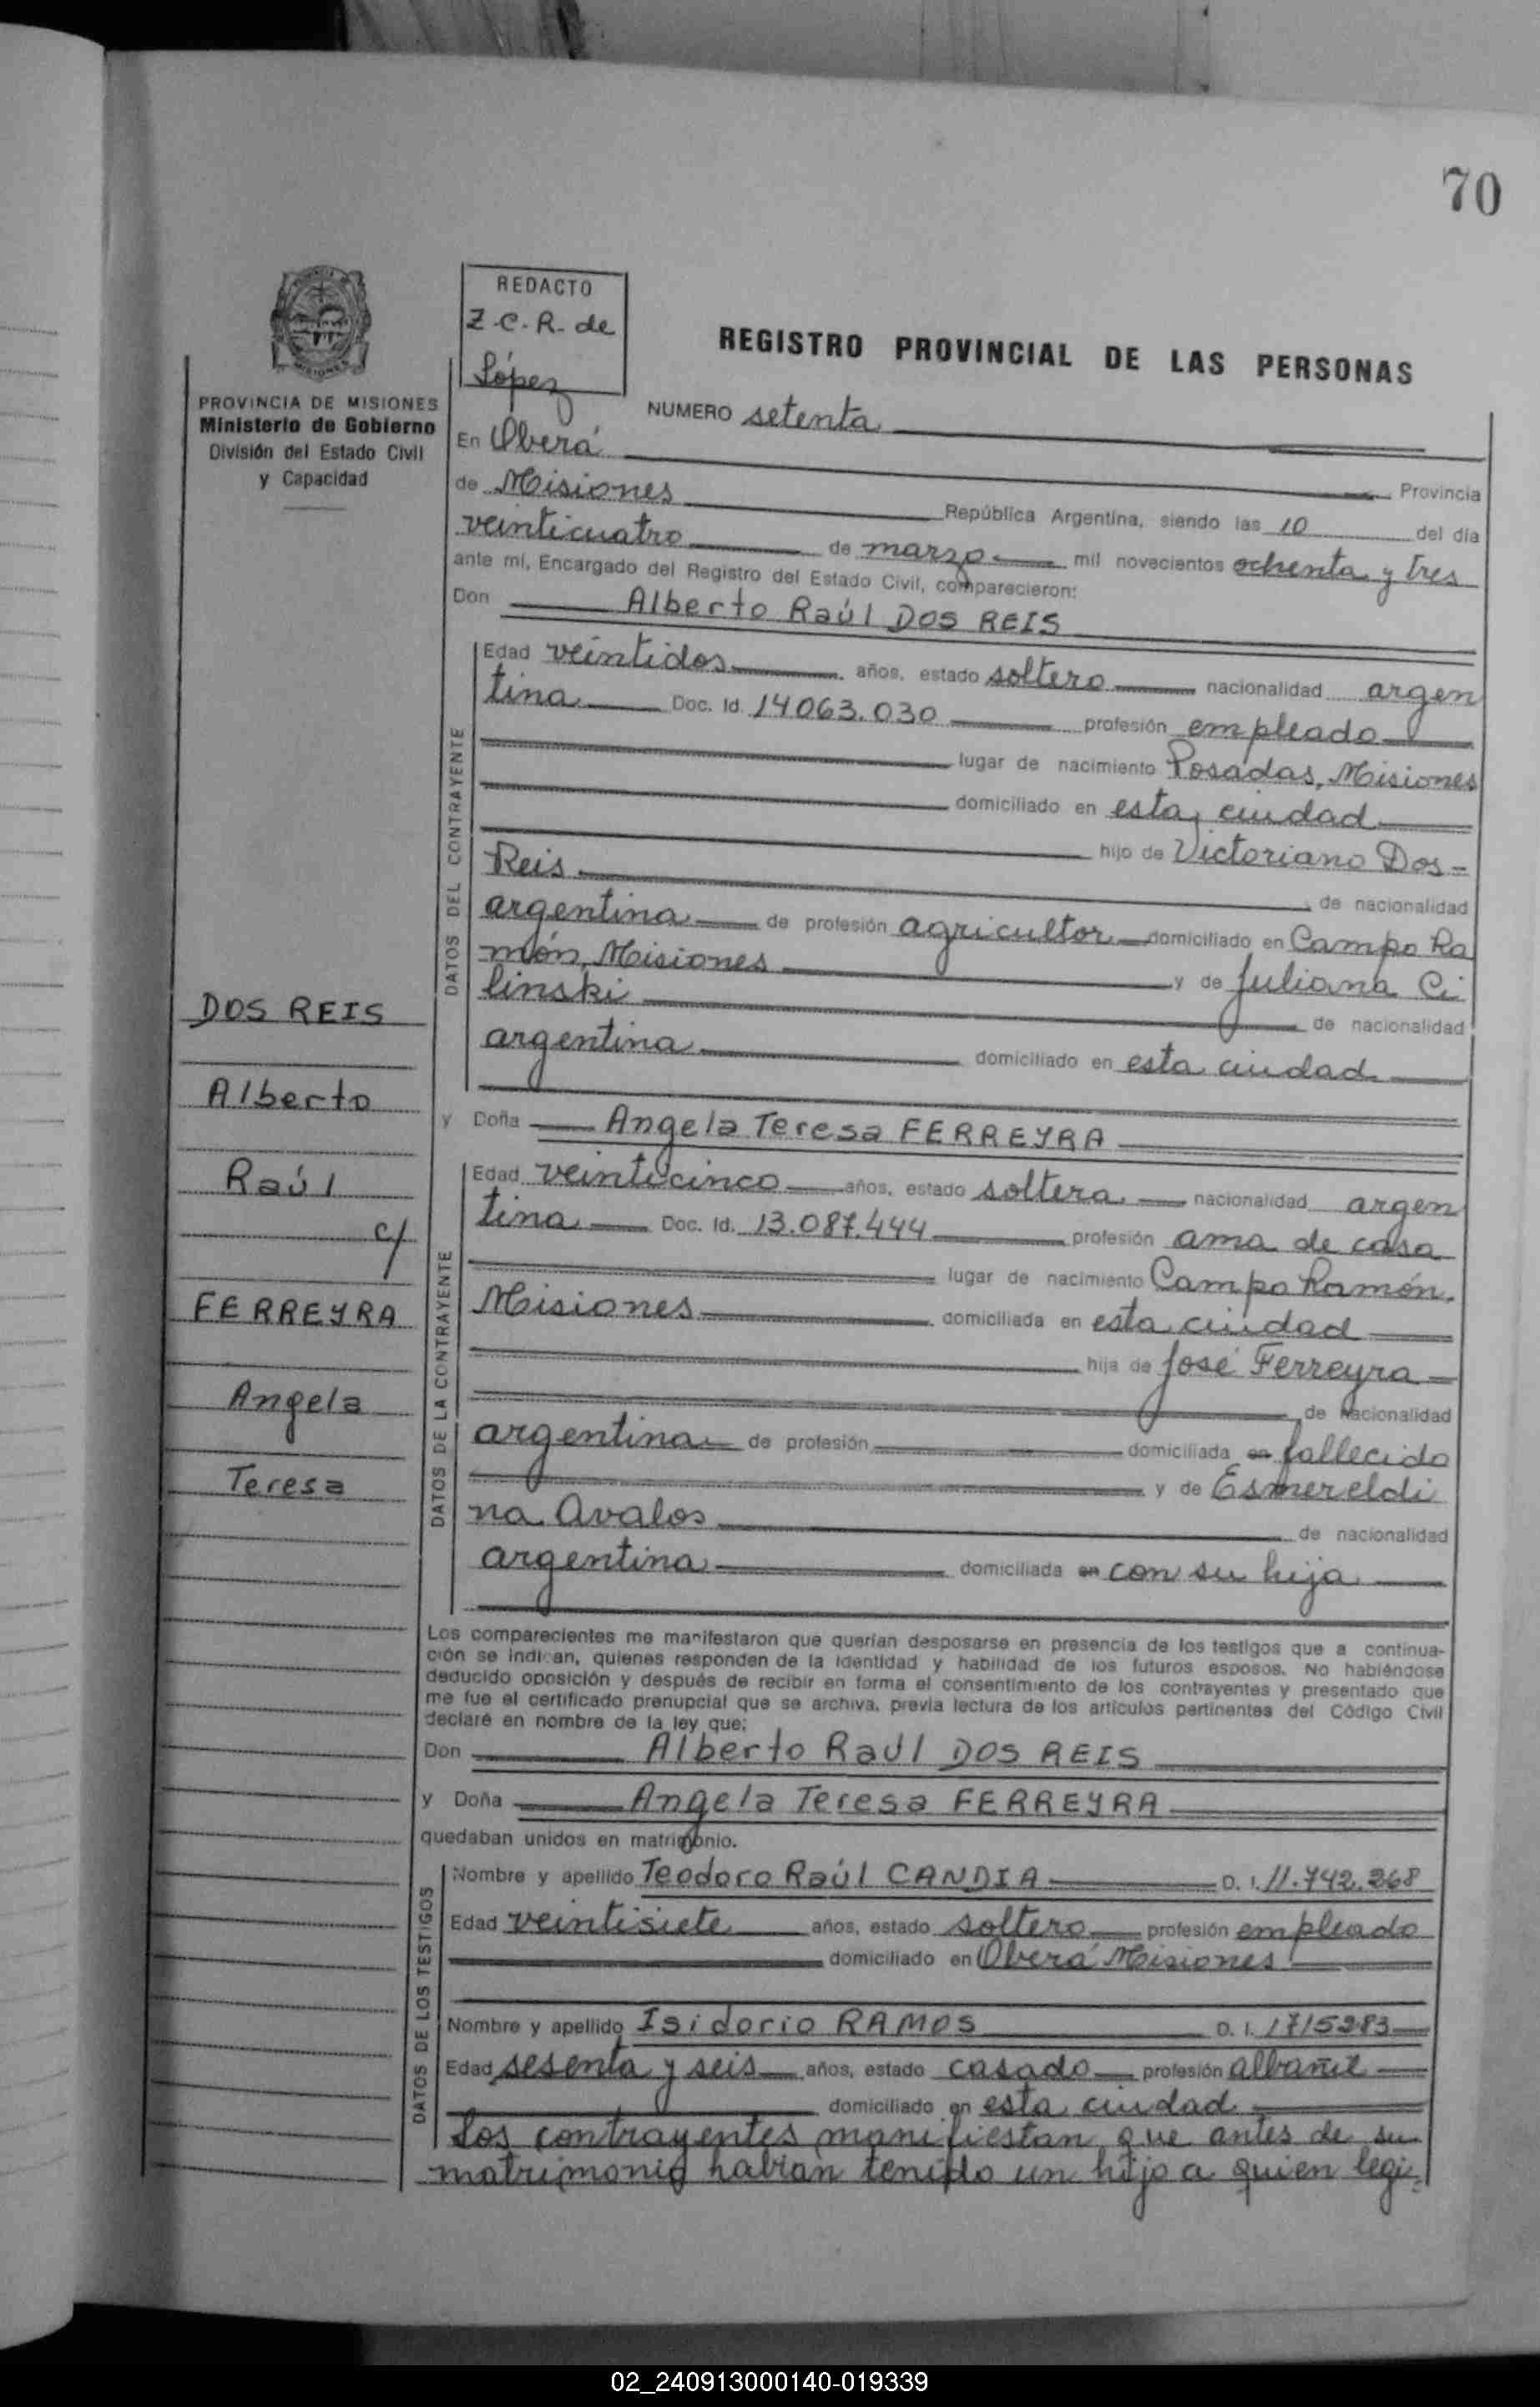 70
REDACTO
Z.C.R. de
López
REGISTRO PROVINCIAL DE LAS PERSONAS
PROVINCIA DE MISIONES
Ministerio de Gobierno
División del Estado Civil
y Capacidad
NUMERO setenta
En Oberá
Provincia
de Misiones República Argentina, siendo las 10 del día
veinticuatro de marzo mil novecientos ochenta y tres
ante mí, Encargado del Registro del Estado Civil, comparecieron:
Don Alberto Raúl DOS REIS
DATOS DEL CONTRAYENTE
Edad veintidos años, estado soltero nacionalidad argen
tina Doc. Id. 14063.030 profesión empleado
lugar de nacimiento Posadas, Misiones
domiciliado en esta ciudad
hijo de Victoriano Dos-
Reis de nacionalidad
argentina de profesión agricultor domiciliado en Campo Ra
món, Misiones y de Juliana Ci
linski de nacionalidad
argentina domiciliado en esta ciudad
DOS REIS
Alberto
Raúl
c/
FERREYRA
Angela
Teresa
y Doña Angela Teresa FERREYRA
DATOS DE LA CONTRAYENTE
Edad veinticinco años, estado soltera nacionalidad argen
tina Doc. Id. 13.087.444 profesión ama de casa
lugar de nacimiento Campo Ramón,
Misiones domiciliada en esta ciudad
hija de José Ferreyra
de nacionalidad
argentina de profesión domiciliada en fallecido
y de Esmereldi
na Avalos de nacionalidad
argentina domiciliada en con su hija
Los comparecientes me manifestaron que querían desposarse en presencia de los testigos que a continua-
ción se indican, quienes responden de la identidad y habilidad de los futuros esposos. No habiéndose
deducido oposición y después de recibir en forma el consentimiento de los contrayentes y presentado que
me fue el certificado prenupcial que se archiva, previa lectura de los artículos pertinentes del Código Civil
declaré en nombre de la ley que:
Don Alberto Raúl DOS REIS
y Doña Angela Teresa FERREYRA
quedaban unidos en matrimonio.
DATOS DE LOS TESTIGOS
Nombre y apellido Teodoro Raúl CANDIA D. I. 11.742.268
Edad veintisiete años, estado soltero profesión empleado
domiciliado en Oberá Misiones
Nombre y apellido Isidorio RAMOS D. I. 1715283
Edad sesenta y seis años, estado casado profesión albañil
domiciliado en esta ciudad
Los contrayentes manifiestan que antes de su
matrimonio habian tenido un hijo a quien legi-
02_240913000140-019339